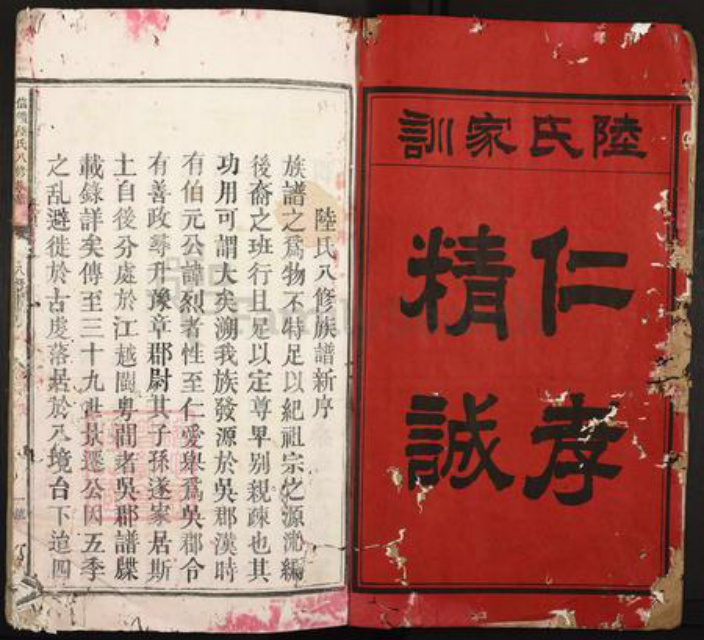 陸氏家訓
仁孝
精誠
陸氏八修族譜新序
族譜之為物不特足以紀祖宗之源流編
後裔之班行且足以定尊卑別親疎也其
功用可謂大矣溯我族發源於吳郡漢時
有伯元公諱烈者性至仁愛舉為吳郡令
有善政尋升豫章郡尉其子孫遂家居斯
土自後分處於江越閩粵間者吳郡譜牒
載錄詳矣傳至三十九世景遷公因五季
之乱避徙於古虔落居於八境台下迨四